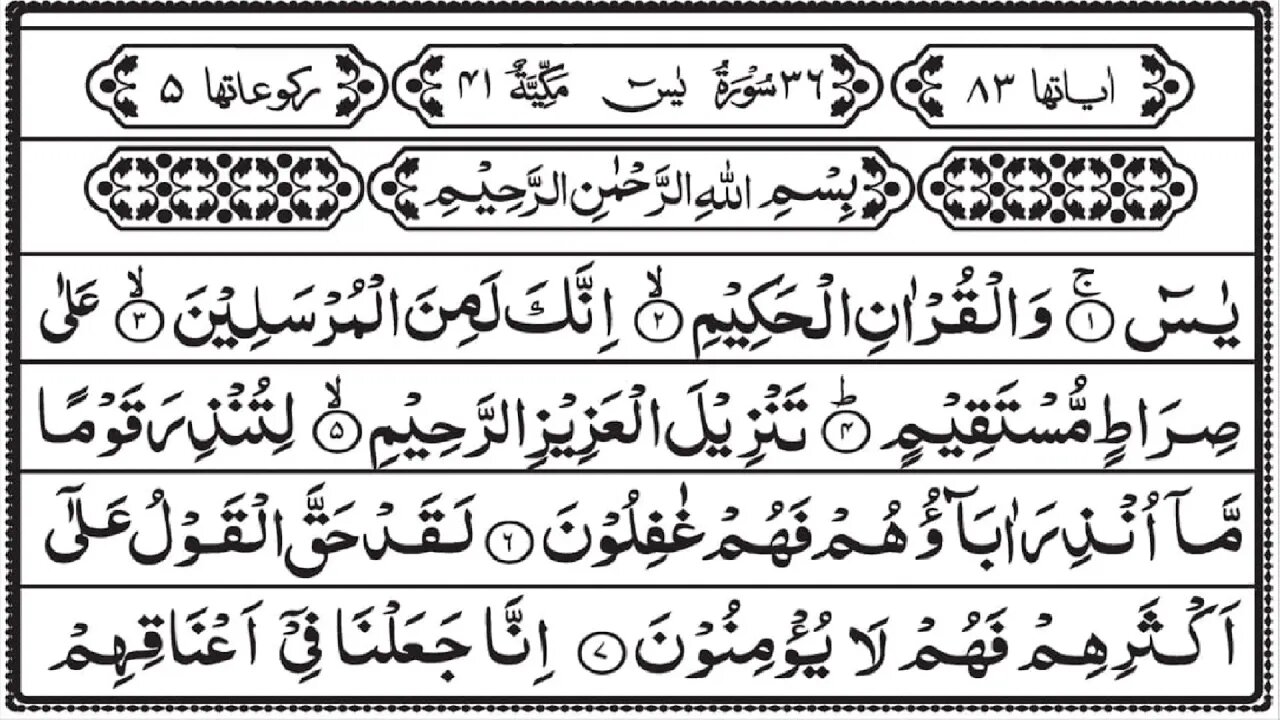 اٰیاتها ۸۳ ۳۶ سُوْرَةُ يٰسٓ مَكِّيَّةٌ ۴۱ ركوعاتها ۵
بِسْمِ اللهِ الرَّحْمٰنِ الرَّحِيْمِ
يٰسٓ ۚ﴿۱﴾ وَالْقُرْاٰنِ الْحَكِيْمِ ۙ﴿۲﴾ اِنَّكَ لَمِنَ الْمُرْسَلِيْنَ ۙ﴿۳﴾ عَلٰى
صِرَاطٍ مُّسْتَقِيْمٍ ؕ﴿۴﴾ تَنْزِيْلَ الْعَزِيْزِ الرَّحِيْمِ ۙ﴿۵﴾ لِتُنْذِرَ قَوْمًا
مَّآ اُنْذِرَ اٰبَآؤُهُمْ فَهُمْ غٰفِلُوْنَ ﴿۶﴾ لَقَدْ حَقَّ الْقَوْلُ عَلٰٓى
اَكْثَرِهِمْ فَهُمْ لَا يُؤْمِنُوْنَ ﴿۷﴾ اِنَّا جَعَلْنَا فِيْٓ اَعْنَاقِهِمْ